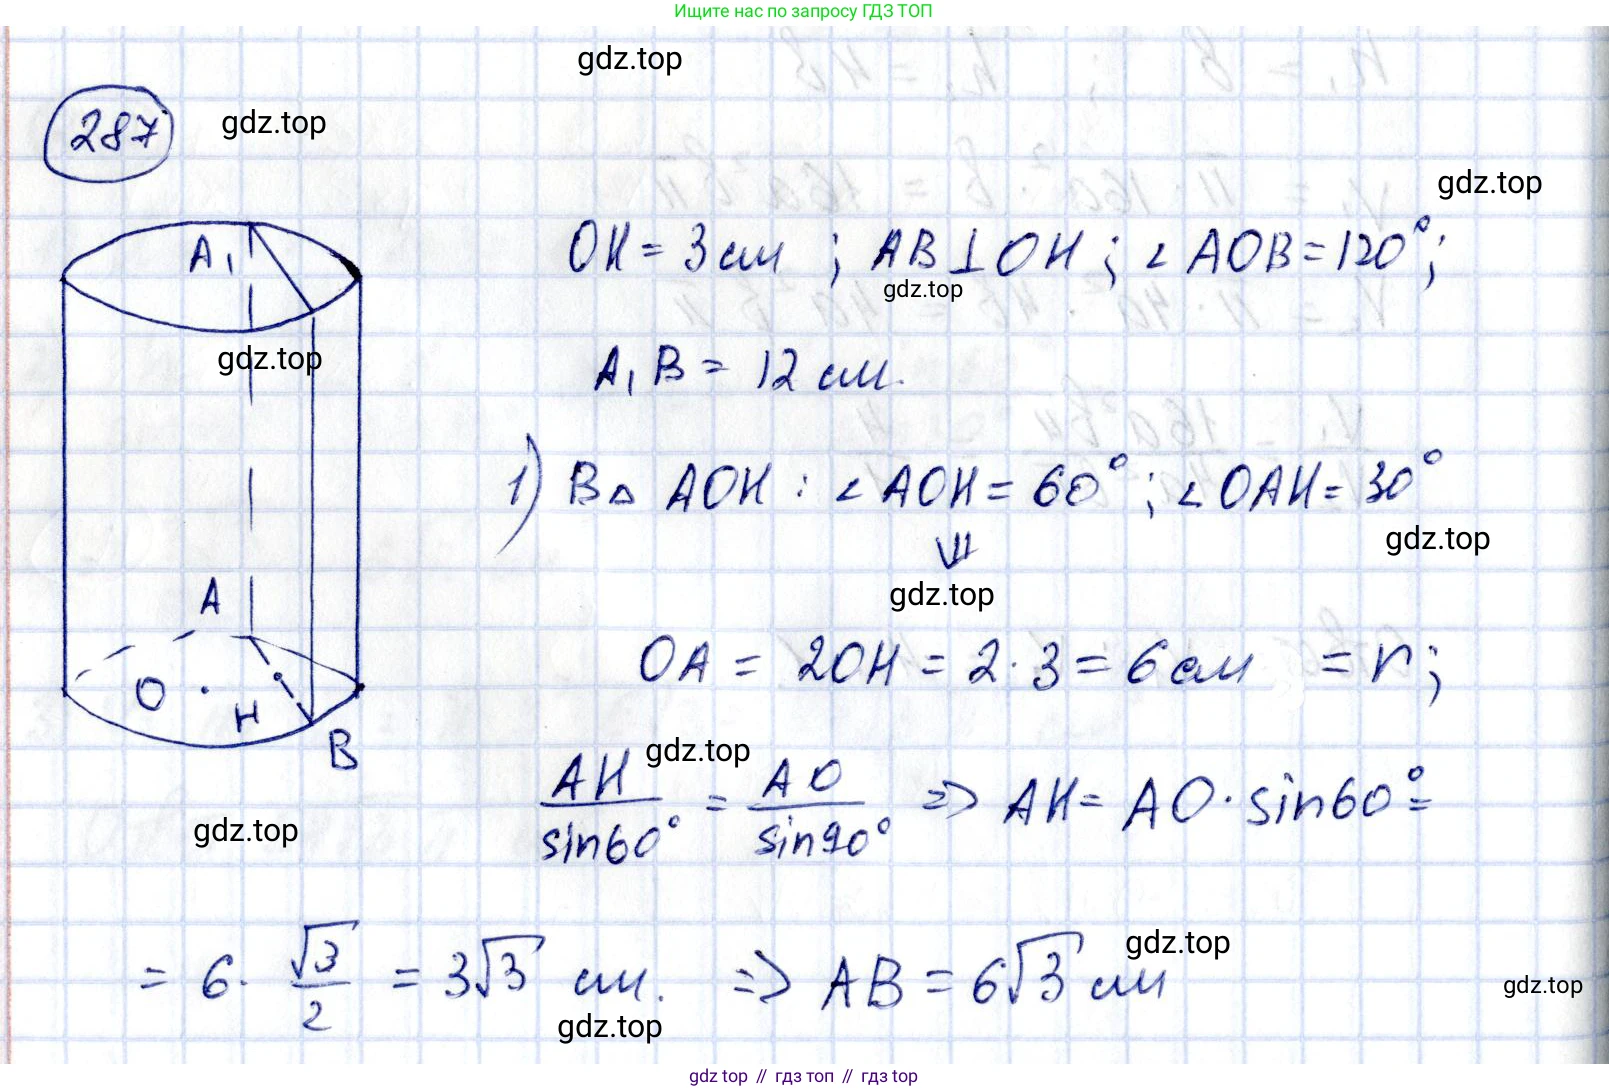 Ищите нас по запросу ГДЗ ТОП
gdz.top
287
gdz.top
gdz.top
A₁
OH = 3 см ; AB ⊥ OH ; ∠ AOB = 120° ;
gdz.top
gdz.top
A₁B = 12 см.
1) В △ AOH : ∠ AOH = 60° ; ∠ OAH = 30°
⇓
gdz.top
gdz.top
A
OA = 2OH = 2 · 3 = 6 см = r ;
O
H
B
gdz.top
AH / sin60° = AO / sin90° => AH = AO · sin60° =
gdz.top
= 6 · √3 / 2 = 3√3 см. => AB = 6√3 см
gdz.top
gdz.top
gdz.top
gdz top // гдз топ // gdz top